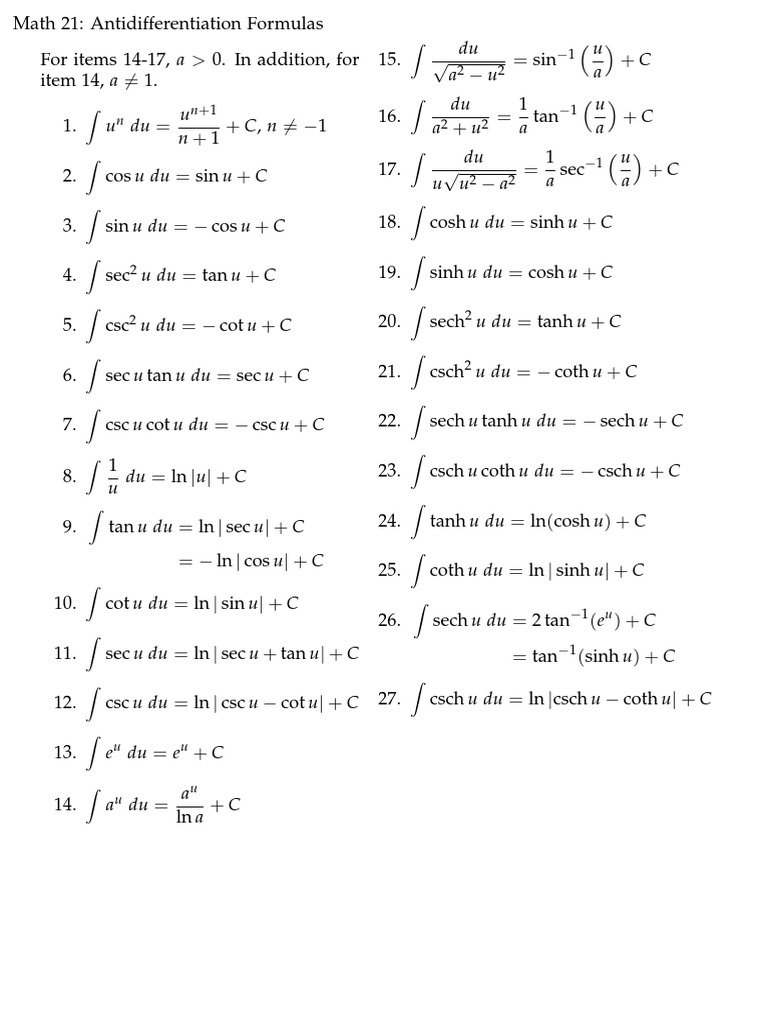 Math 21: Antidifferentiation Formulas
For items 14-17, a > 0. In addition, for
item 14, a ≠ 1.
1. ∫ uⁿ du = uⁿ⁺¹/(n + 1) + C, n ≠ −1
2. ∫ cos u du = sin u + C
3. ∫ sin u du = − cos u + C
4. ∫ sec² u du = tan u + C
5. ∫ csc² u du = − cot u + C
6. ∫ sec u tan u du = sec u + C
7. ∫ csc u cot u du = − csc u + C
8. ∫ 1/u du = ln |u| + C
9. ∫ tan u du = ln | sec u| + C
= − ln | cos u| + C
10. ∫ cot u du = ln | sin u| + C
11. ∫ sec u du = ln | sec u + tan u| + C
12. ∫ csc u du = ln | csc u − cot u| + C
13. ∫ eᵘ du = eᵘ + C
14. ∫ aᵘ du = aᵘ/ln a + C
15. ∫ du/√(a² − u²) = sin⁻¹ (u/a) + C
16. ∫ du/(a² + u²) = 1/a tan⁻¹ (u/a) + C
17. ∫ du/(u√(u² − a²)) = 1/a sec⁻¹ (u/a) + C
18. ∫ cosh u du = sinh u + C
19. ∫ sinh u du = cosh u + C
20. ∫ sech² u du = tanh u + C
21. ∫ csch² u du = − coth u + C
22. ∫ sech u tanh u du = − sech u + C
23. ∫ csch u coth u du = − csch u + C
24. ∫ tanh u du = ln(cosh u) + C
25. ∫ coth u du = ln | sinh u| + C
26. ∫ sech u du = 2 tan⁻¹(eᵘ) + C
= tan⁻¹(sinh u) + C
27. ∫ csch u du = ln |csch u − coth u| + C